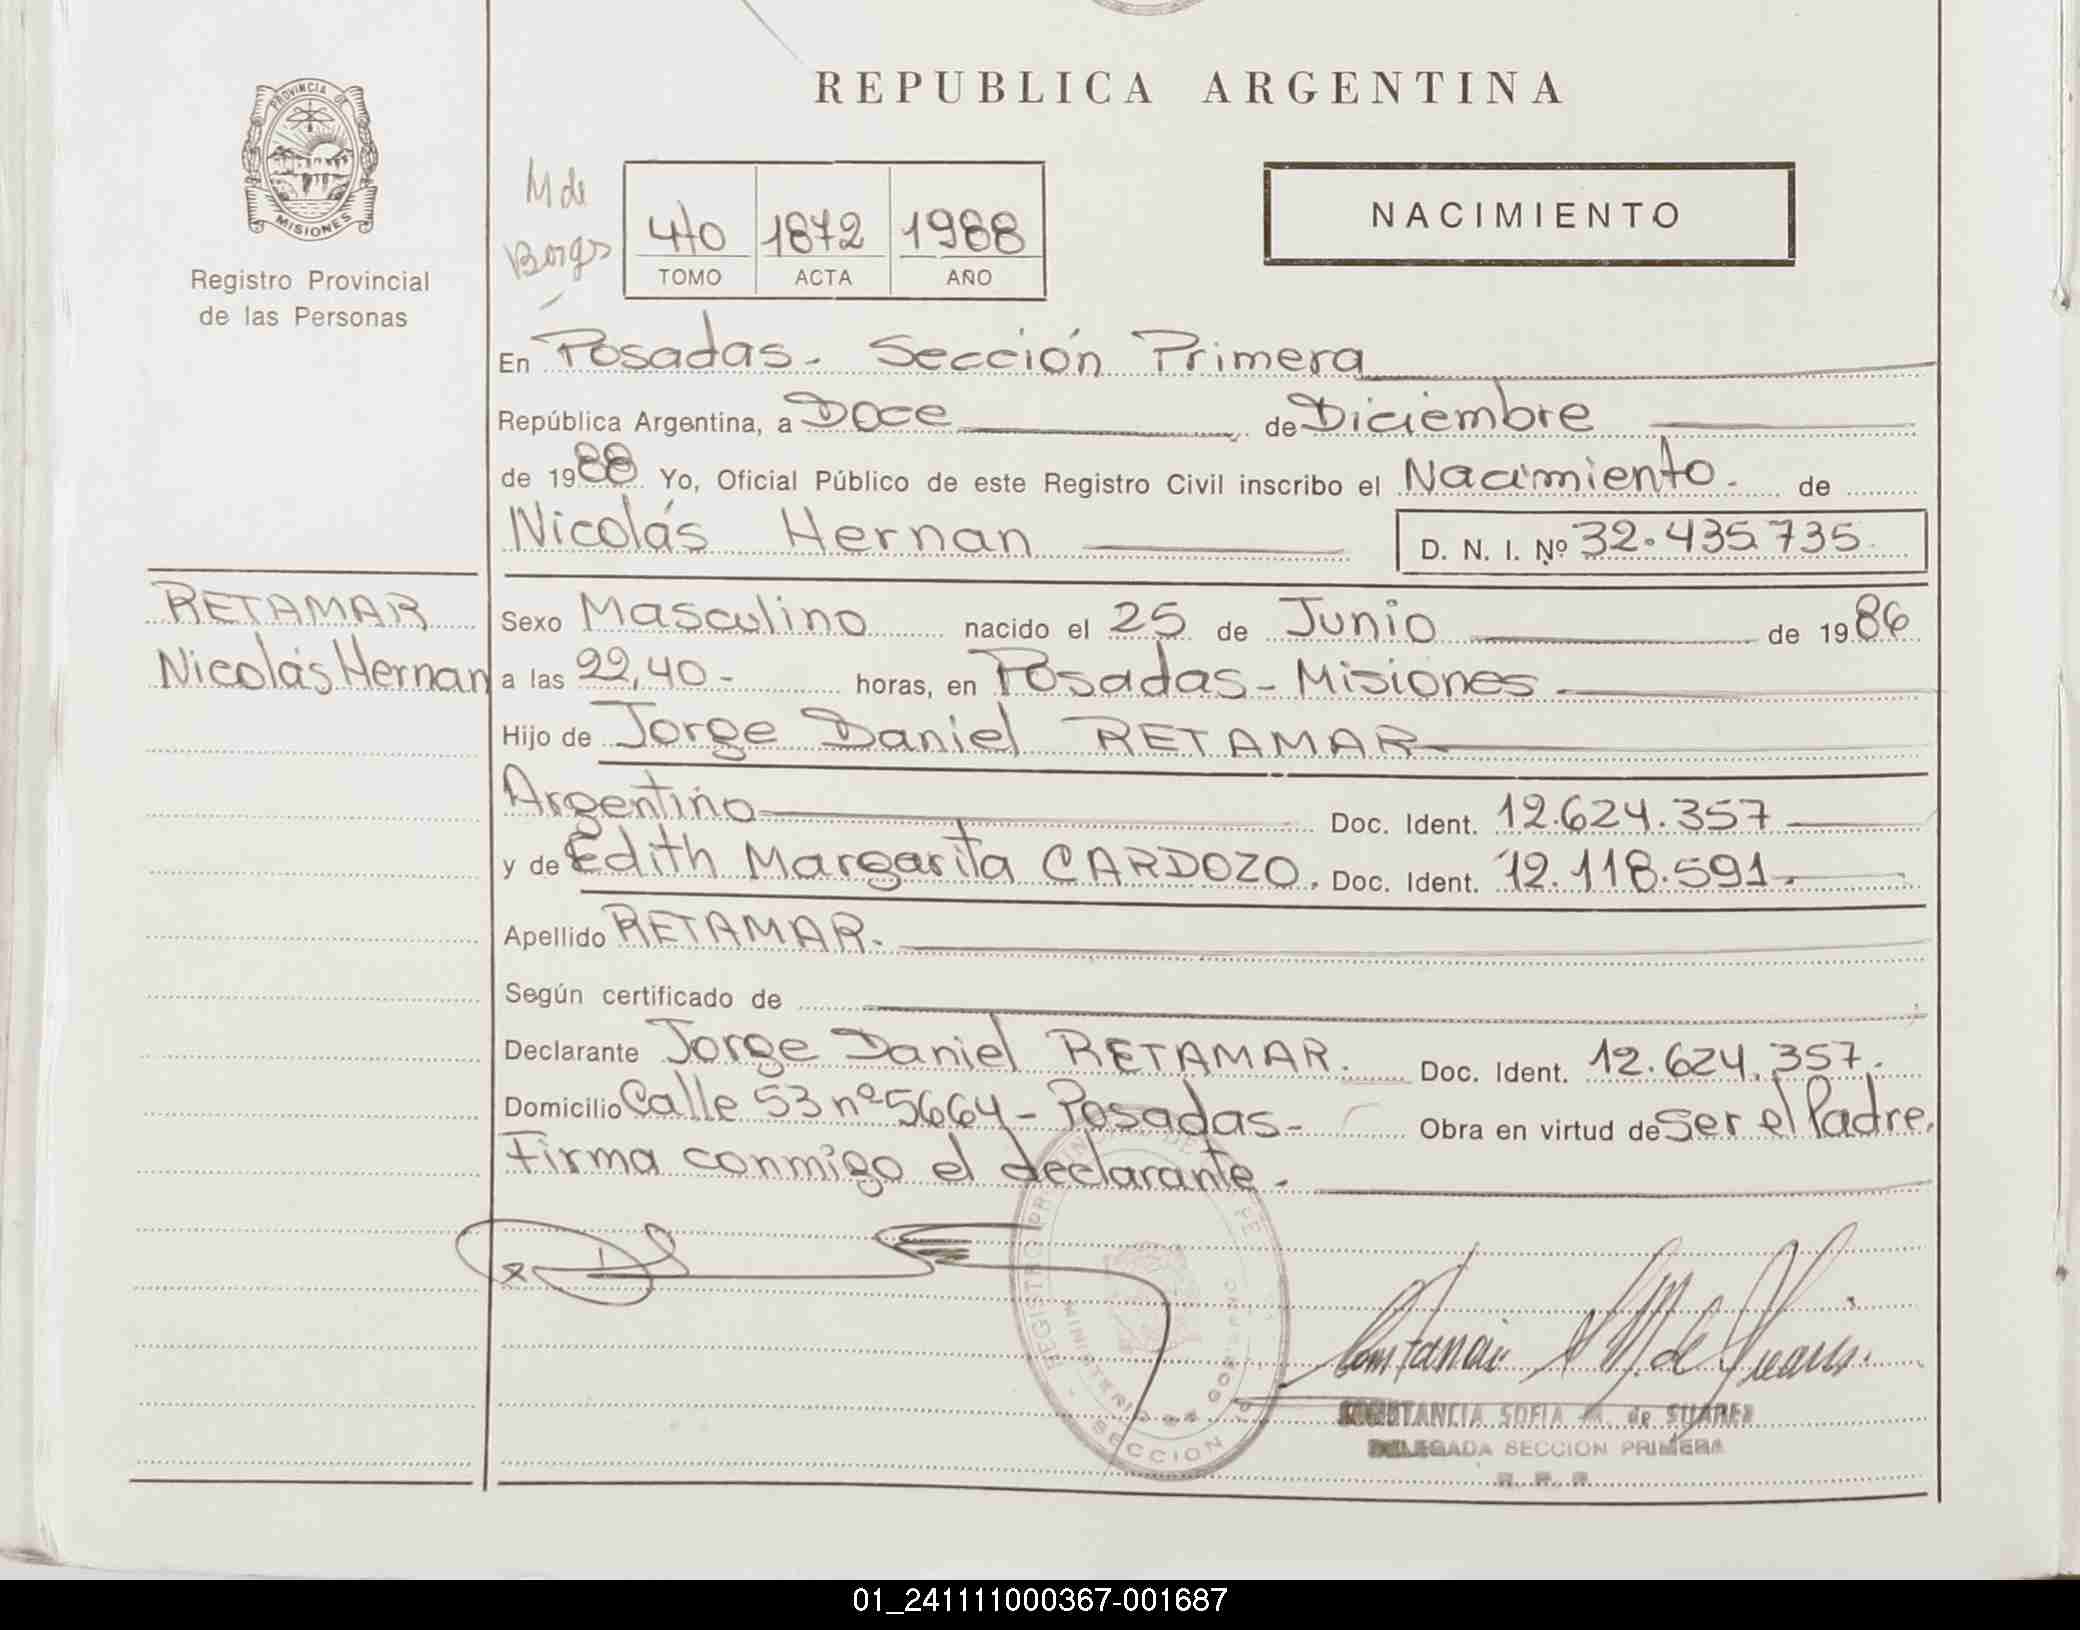 REPUBLICA ARGENTINA
PROVINCIA DE
MISIONES
Registro Provincial
de las Personas
M de
Borges
4/0 1872 1988
TOMO ACTA AÑO
NACIMIENTO
En Posadas- Sección Primera
República Argentina, a Doce de Diciembre
de 1988 Yo, Oficial Público de este Registro Civil inscribo el Nacimiento. de
Nicolás Hernan D. N. I. Nº 32.435.735
RETAMAR
Nicolás Hernan
Sexo Masculino nacido el 25 de Junio de 1986
a las 22,40- horas, en Posadas- Misiones
Hijo de Jorge Daniel RETAMAR
Argentino Doc. Ident. 12.624.357
y de Edith Margarita CARDOZO. Doc. Ident. 12.118.591.
Apellido RETAMAR.
Según certificado de
Declarante Jorge Daniel RETAMAR. Doc. Ident. 12.624.357.
Domicilio Calle 53 nº 5664- Posadas- Obra en virtud de Ser el Padre.
Firma conmigo el declarante.
REGISTRO PROVINCIAL DE
MINISTERIO DE GOBIERNO
SECCION
Constancia S M. de Suarez.
CONSTANCIA SOFIA M. de SUAREZ
DELEGADA SECCION PRIMERA
01_241111000367-001687